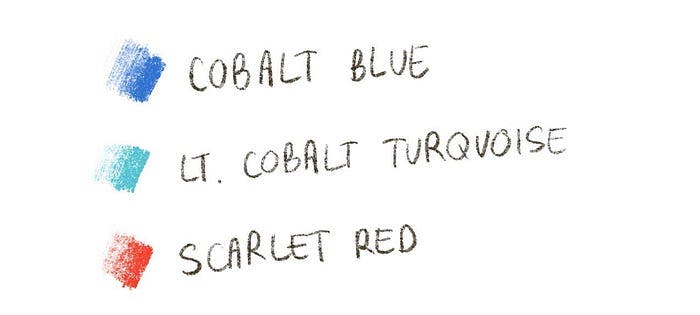 COBALT BLUE
LT. COBALT TURQUOISE
SCARLET RED